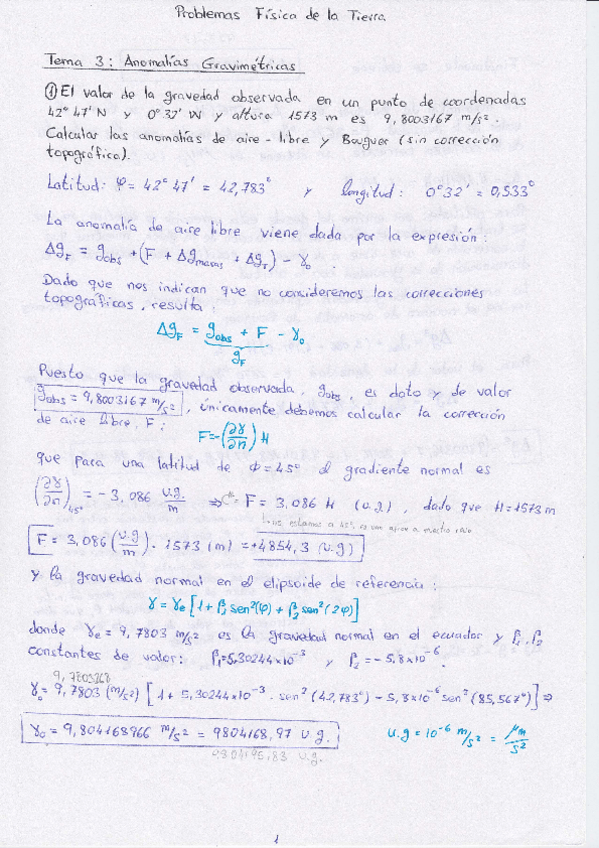 Problemas Física de la Tierra
Tema 3: Anomalías Gravimétricas
① El valor de la gravedad observada en un punto de coordenadas
42° 47' N y 0° 32' W y altura 1573 m es 9,8003167 m/s².
Calcular las anomalías de aire-libre y Bouguer (sin corrección
topográfica).
Latitud: φ = 42° 47' = 42,783° y longitud: 0° 32' = 0,533°
La anomalía de aire libre viene dada por la expresión:
Δg_F = g_obs + (F + Δg_masas + Δg_T) - γ₀ .
Dado que nos indican que no consideremos las correcciones
topográficas, resulta:
Δg_F = g_obs + F - γ₀
g_F
Puesto que la gravedad observada, g_obs, es dato y de valor
g_obs = 9,8003167 m/s², únicamente debemos calcular la corrección
de aire libre, F:
F = -(∂γ/∂n) H
que para una latitud de Φ = 45° el gradiente normal es
(∂γ/∂n)_45° = -3,086 u.g./m ⇒ F = 3,086 H (u.g), dado que H = 1573 m
F = 3,086 (u.g/m) · 1573 (m) = +4854,3 (u.g)
y la gravedad normal en el elipsoide de referencia:
γ = γe [1 + β₁ sen²(φ) + β₂ sen²(2φ)]
donde γe = 9,7803 m/s² es la gravedad normal en el ecuador y β₁, β₂
constantes de valor: β₁ = 5,30244×10⁻³ y β₂ = -5,8×10⁻⁶.
9,7803268
γ₀ = 9,7803 (m/s²) [1 + 5,30244×10⁻³ · sen²(42,783°) - 5,8×10⁻⁶ sen²(85,567°)] ⇒
γ₀ = 9,804168966 m/s² = 9804168,97 u.g. u.g = 10⁻⁶ m/s² = μm/s²
9804195,83 u.g.
1